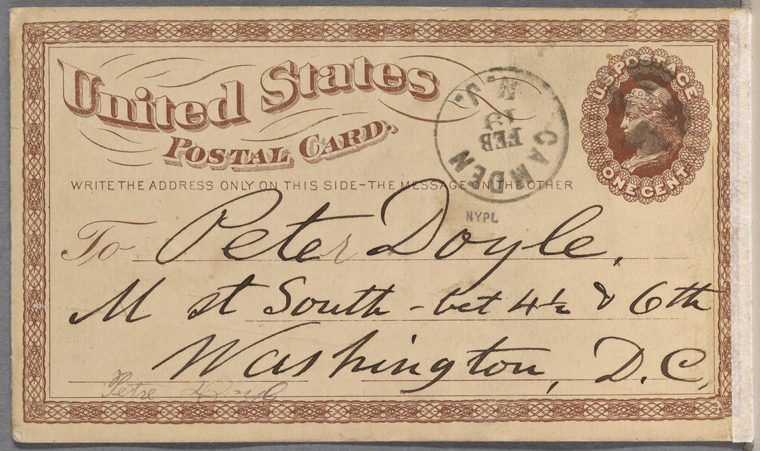 United States
POSTAL CARD.
U.S. POSTAGE
ONE CENT
CAMDEN
N.J.
FEB
WRITE THE ADDRESS ONLY ON THIS SIDE-THE MESSAGE ON THE OTHER
NYPL
To Peter Doyle,
M st South - bet 4½ & 6th
Washington, D.C,